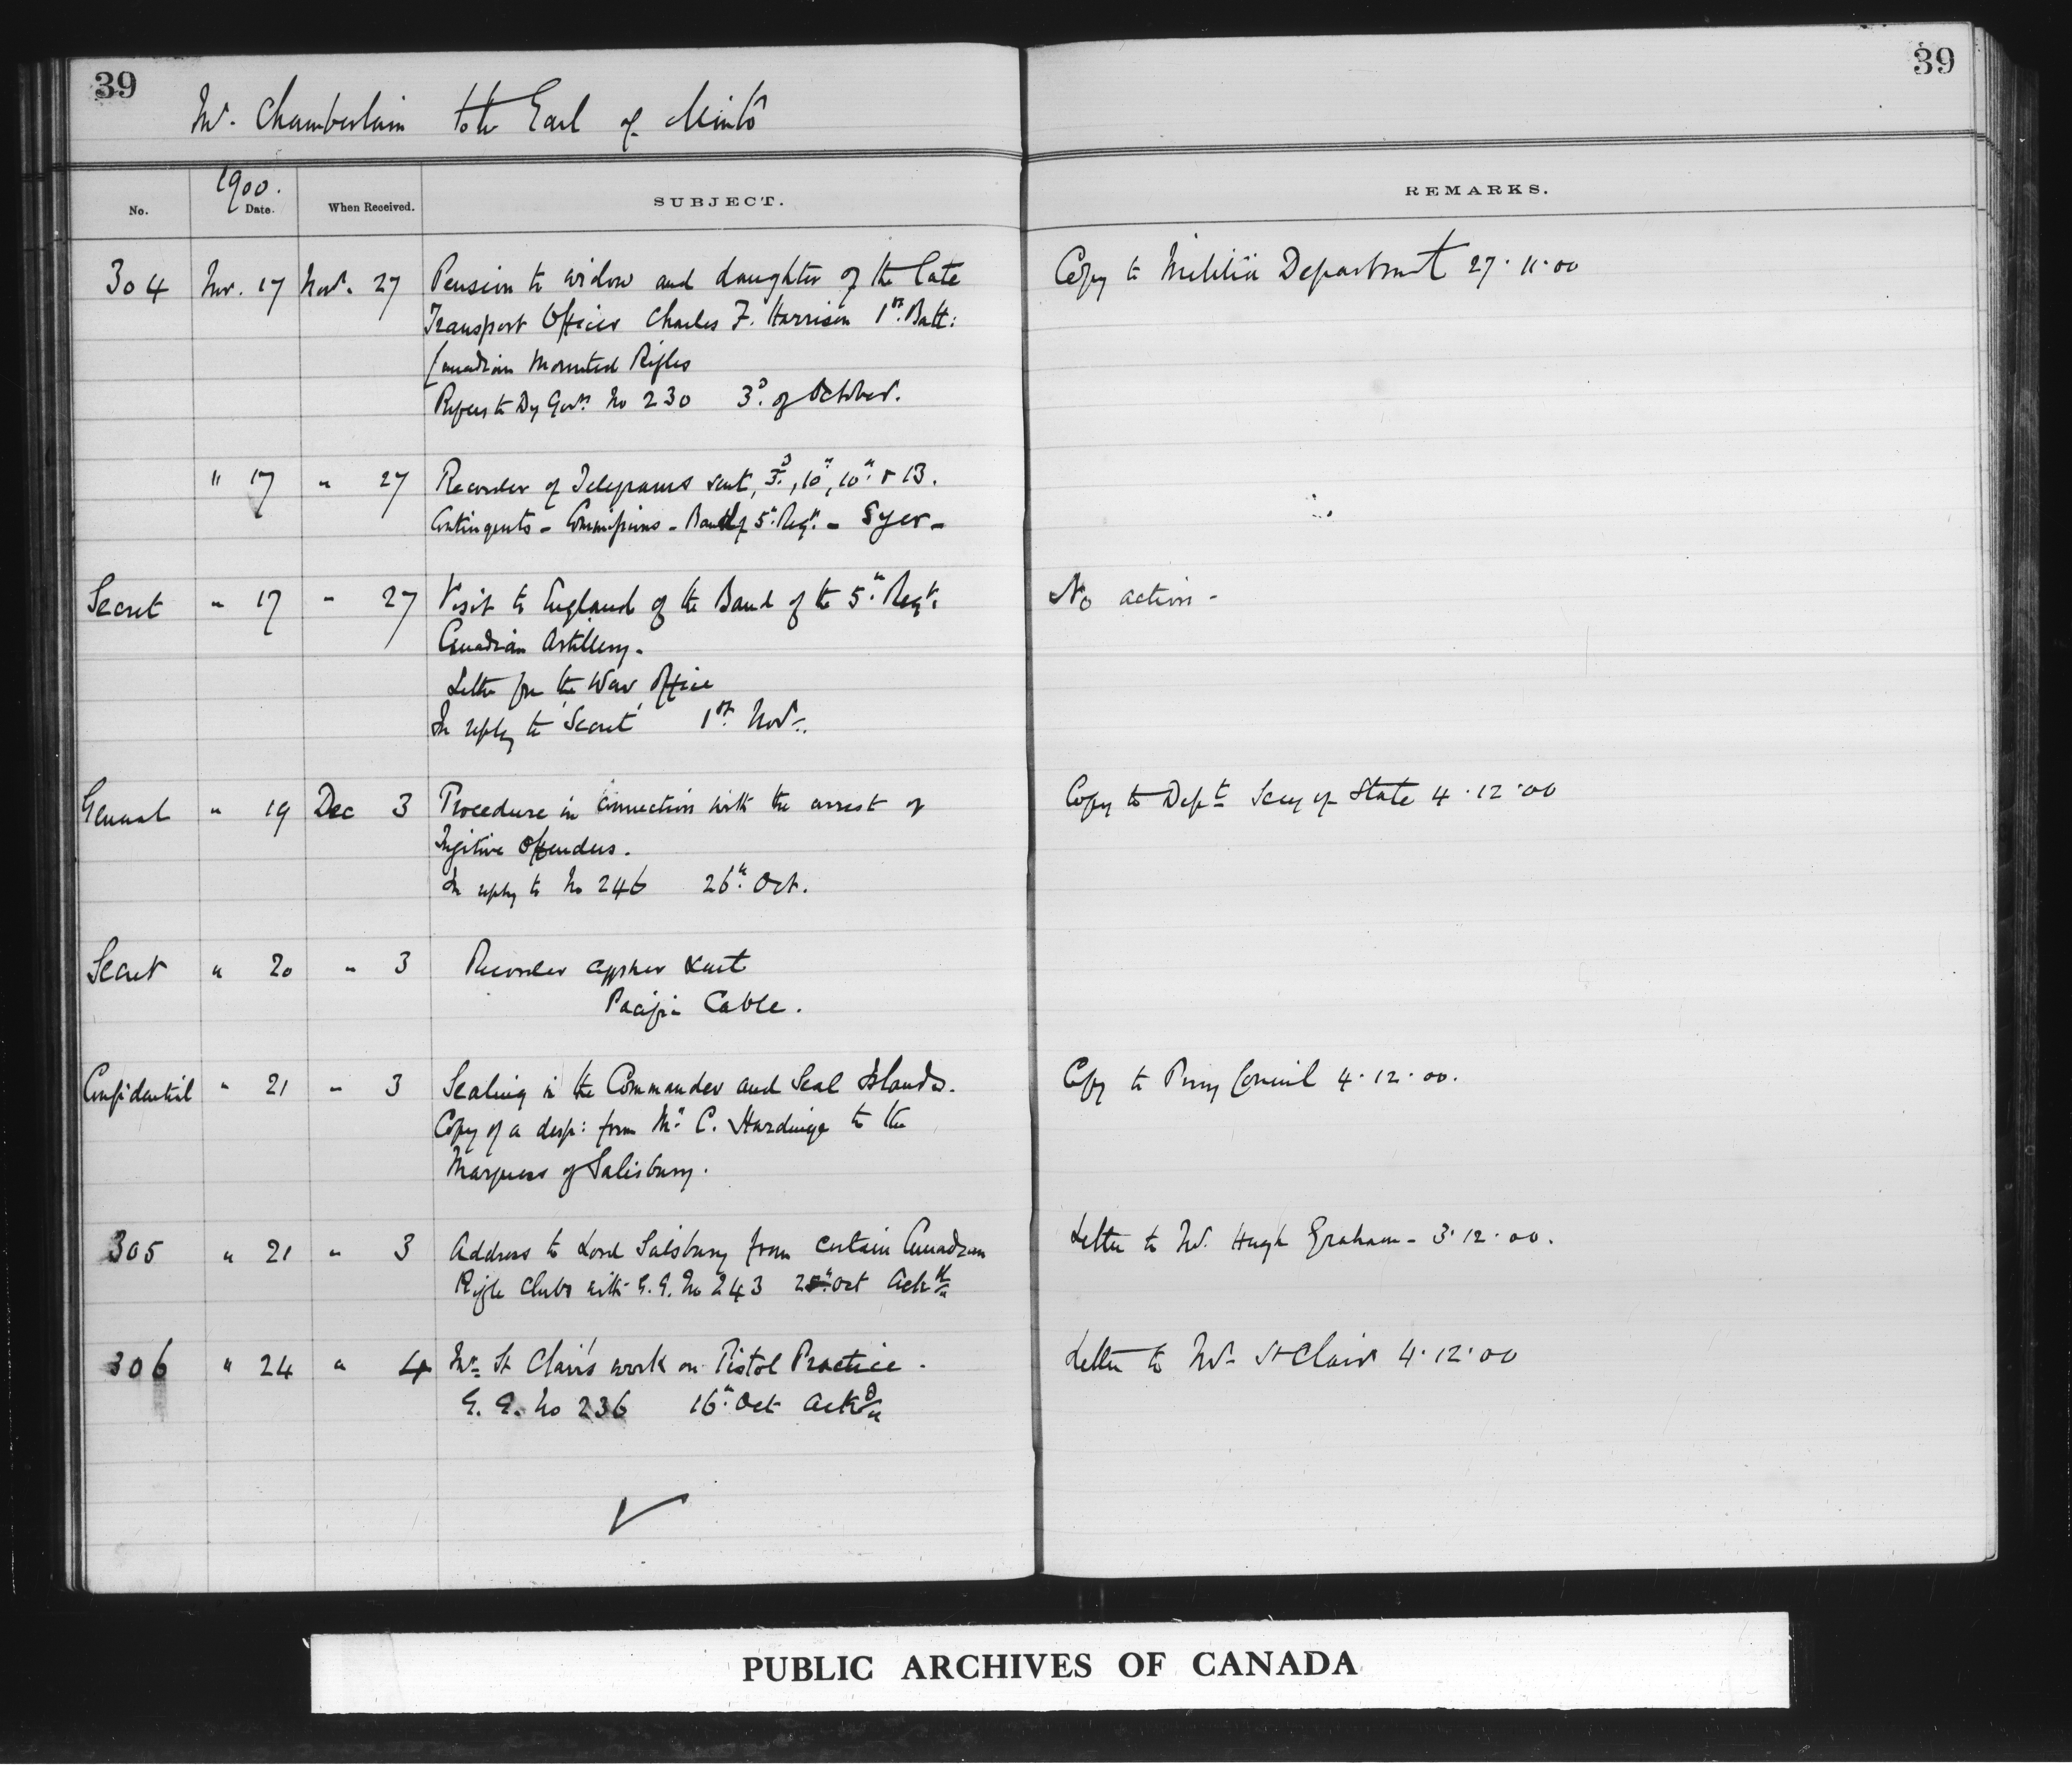 39
39
Mr. Chamberlain to the Earl of Minto
1900.
No.
Date.
When Received.
SUBJECT.
REMARKS.
304 Nov. 17 Nov. 27 Pension to widow and daughter of the late Copy to Militia Department 27.11.00
Transport Officer Charles F. Harrison 1st. Batt:
Canadian Mounted Rifles
Refers to Dy Govrs No 230 3d. of October.
" 17 " 27 Recorder of Telegrams sent, 3d., 10th, 10th. & 13.
Contingents - Commissions - Band of 5th. Regt. - Syer -
Secret " 17 " 27 Visit to England of the Band of the 5th. Regt. No action -
Canadian Artillery.
Letter from the War Office
In reply to 'Secret' 1st. Nov.
General " 19 Dec 3 Procedure in connection with the arrest of Copy to Dept Secy of State 4.12.00
Fugitive Offenders.
In reply to No 246 26th. Oct.
Secret " 20 " 3 Recorder cypher sent
Pacific Cable.
Confidential " 21 " 3 Sealing in the Commander and Seal Islands. Copy to Privy Council 4.12.00.
Copy of a desp: from Mr. C. Hardinge to the
Marquess of Salisbury.
305 " 21 " 3 Address to Lord Salisbury from certain Canadian Letter to Mr. Hugh Graham - 3.12.00.
Rifle Clubs with G.G. No 243 25th. Oct Ack
306 " 24 " 4 Mr. St Clair's work on Pistol Practice. Letter to Mr. St Clair 4.12.00
G.G. No 236 16th. Oct Ack
PUBLIC ARCHIVES OF CANADA